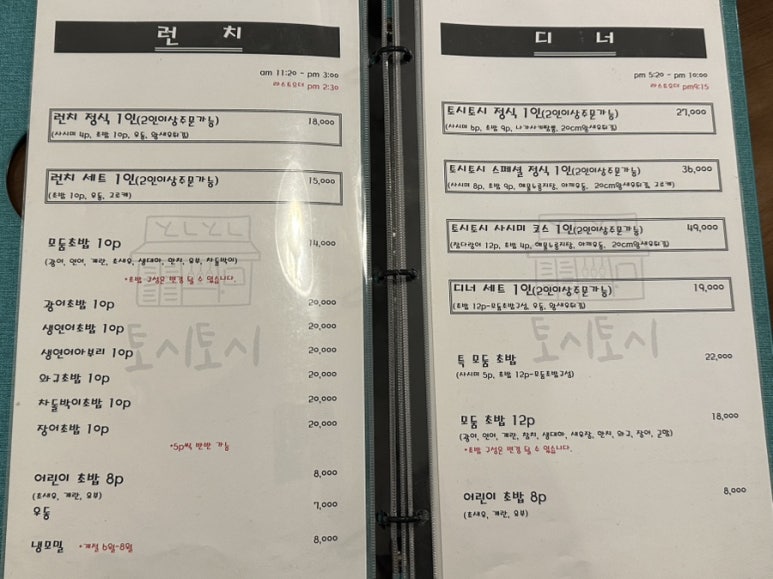 런 치
am 11:20 - pm 3:00
라스트오더 pm 2:30
런치 정식 1인(2인이상주문가능) 18,000
(사시미 4p, 초밥 10p, 우동, 왕새우튀김)
런치 세트 1인(2인이상주문가능) 15,000
(초밥 10p, 우동, 고로케)
모둠초밥 10p 14,000
(광어, 연어, 계란, 초새우, 생대하, 한치, 유부, 차돌박이)
*초밥 구성은 변경 될 수 있습니다.
광어초밥 10p 20,000
생연어초밥 10p 20,000
생연어아부리 10p 20,000
와규초밥 10p 20,000
차돌박이초밥 10p 20,000
장어초밥 10p 20,000
*5p씩 반반 가능
토시토시
어린이 초밥 8p 8,000
(초새우, 계란, 유부)
우동 7,000
냉모밀 *계절 6월-8월 8,000
디 너
pm 5:20 - pm 10:00
라스트오더 pm9:15
토시토시 정식 1인(2인이상주문가능) 27,000
(사시미 6p, 초밥 9p, 나가사끼짬뽕, 20cm왕새우튀김)
토시토시 스페셜 정식 1인(2인이상주문가능) 36,000
(사시미 8p, 초밥 9p, 해물누룽지탕, 야끼우동, 20cm왕새우튀김, 고로케)
토시토시 사시미 코스 1인(2인이상주문가능) 49,000
(참다랑어 12p, 초밥 4p, 해물누룽지탕, 야끼우동, 20cm왕새우튀김)
디너 세트 1인(2인이상주문가능) 19,000
(초밥 12p-모둠초밥구성, 우동, 왕새우튀김)
토시토시
특 모둠 초밥 22,000
(사시미 5p, 초밥 12p-모둠초밥구성)
모둠 초밥 12p 18,000
(광어, 연어, 계란, 참치, 생대하, 새우장, 한치, 와규, 장어, 군함)
*초밥 구성은 변경 될 수 있습니다.
어린이 초밥 8p 8,000
(초새우, 계란, 유부)